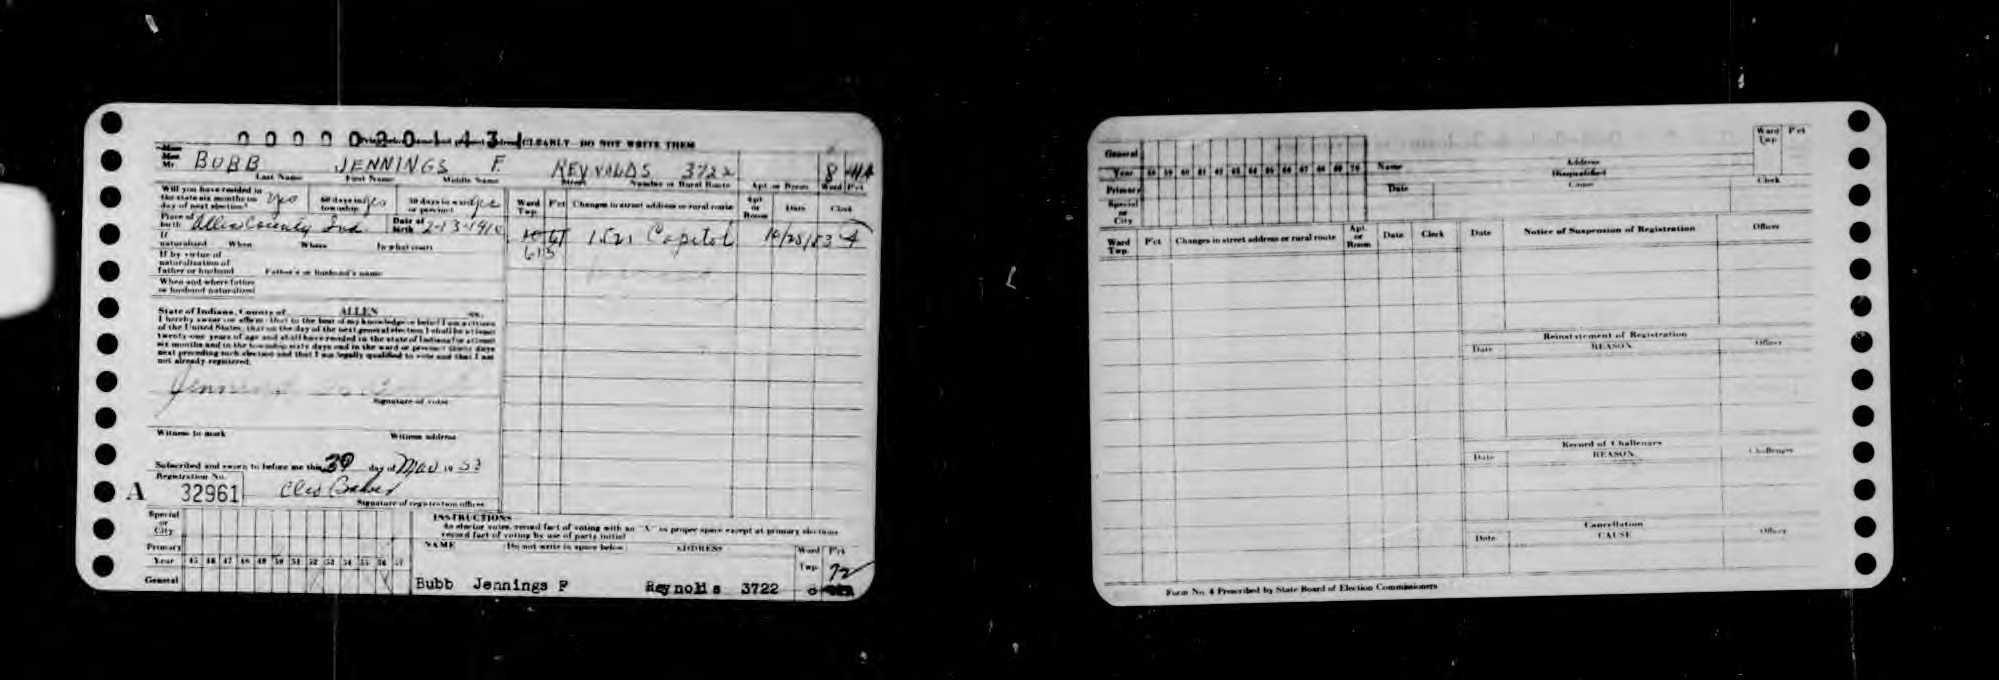 0 0 0 0 0 3 0 1 4 3 CLEARLY DO NOT WRITE THEM
Mr. BUBB JENNINGS F. REYNOLDS 3722 8
Last Name First Name Middle Name Street Number or Rural Route Apt. or Room Ward P'ct
Will you have resided in the state six months on day of next election? yes 60 days in township yes 30 days in ward or precinct yes
Ward Twp. P'ct Changes in street address or rural route Apt. or Room Date Clerk
Place of birth Allen County Ind. Date of birth
1521 Capitol
613
If naturalized When Where In what court
If by virtue of naturalization of father or husband Father's or husband's name
When and where father or husband naturalized
State of Indiana, County of ALLEN ss.
I hereby swear (or affirm) that to the best of my knowledge or belief I am a citizen
of the United States, that on the day of the next general election I shall be at least
twenty-one years of age and shall have resided in the state of Indiana for at least
six months and in the township sixty days and in the ward or precinct thirty days
next preceding such election and that I am legally qualified to vote and that I am
not already registered.
Signature of voter
Witness to mark Witness address
Subscribed and sworn to before me this 30 day of 19 53
Registration No.
A 32961
Signature of registration officer
INSTRUCTIONS
As elector votes, record fact of voting with an "X" in proper space except at primary elections
record fact of voting by use of party initial
Special or City
Primary
Year 45 46 47 48 49 50 51 52 53 54 55 56 57
General
NAME (Do not write in space below) ADDRESS Ward Twp. P'ct
72
Bubb Jennings F Reynolds 3722 8
General
Year 58 59 60 61 62 63 64 65 66 67 68 69 70
Primary
Special or City
Name Address Ward Twp. P'ct
Disqualified
Date Cause Clerk
Ward Twp. P'ct Changes in street address or rural route Apt. or Room Date Clerk
Date Notice of Suspension of Registration Officer
Reinstatement of Registration
Date REASON Officer
Record of Challenges
Date REASON Challenger
Cancellation
Date CAUSE Officer
Form No. 4 Prescribed by State Board of Election Commissioners